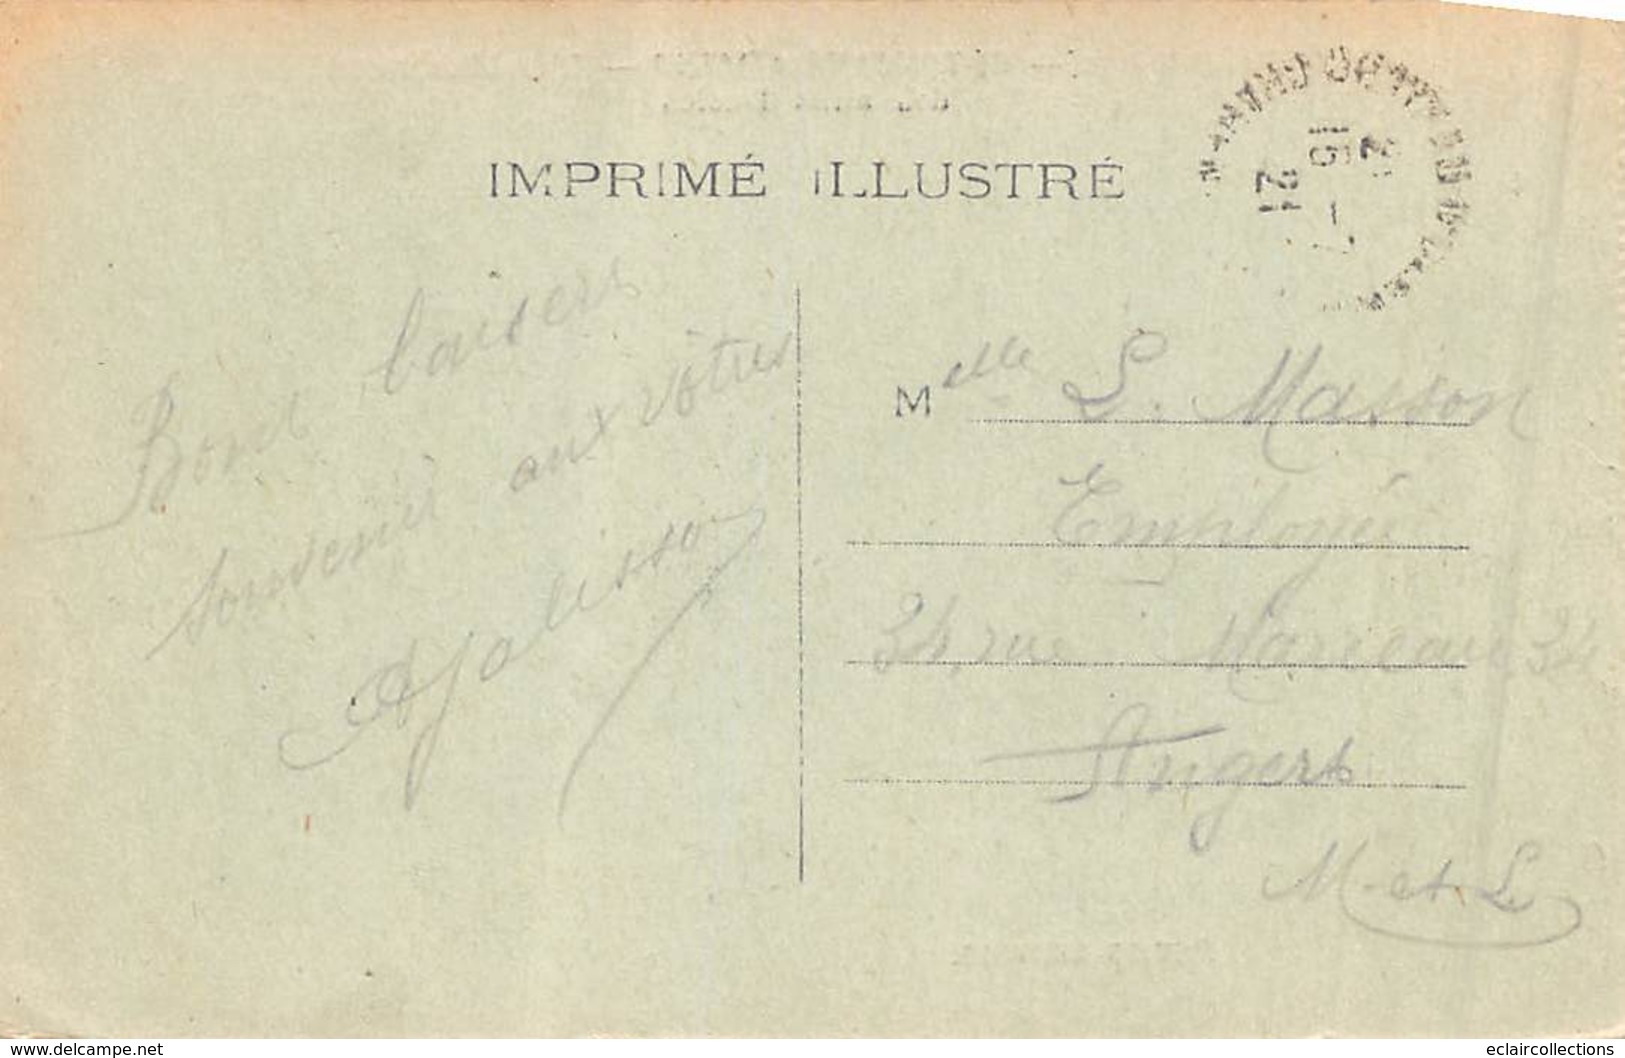 IMPRIMÉ ILLUSTRÉ
15 - 7
21
Bons baisers
souvenir aux vôtres
Melle L. Masson
Employée
34, rue Marceau 34
Angers
M. et L.
www.delcampe.net
eclaircollections